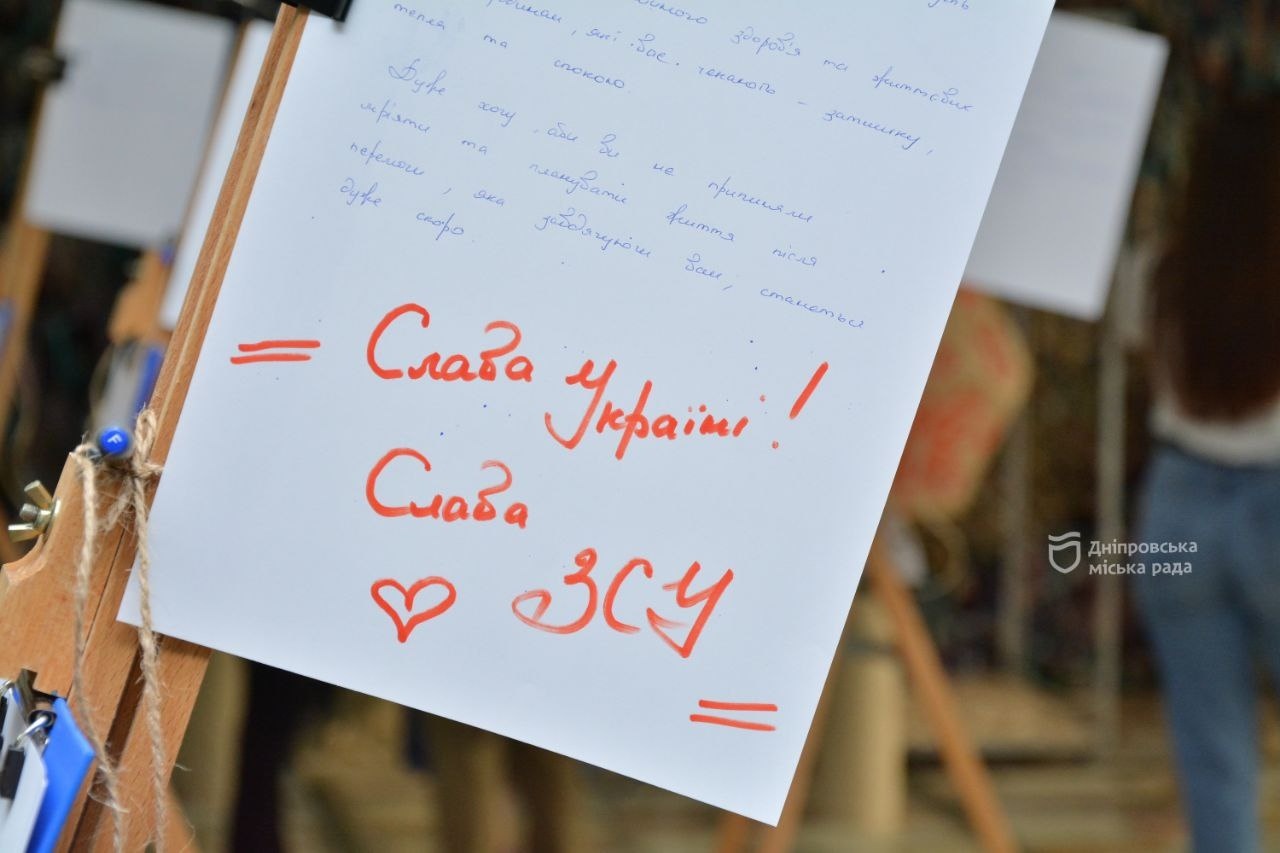 здоров'я та життєвих
, які вас чекають – затишку,
тепла та спокою.
Дуже хочу, аби ви не припиняли
мріяти та планувати життя після
перемоги, яка завдячуючи вам, станеться
дуже скоро.
= Слава Україні!
Слава
ЗСУ =
Дніпровська
міська рада